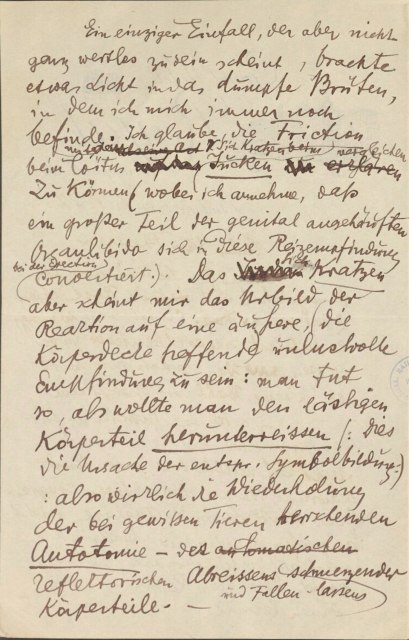 Ein einziger Einfall, der aber nicht
ganz wertlos zu sein scheint, brachte
etwas Licht in das dumpfe Brüten,
in dem ich mich immer noch
befinde. Ich glaube, die Friction
mit dem sich Kratzen beim vergleichen
beim Coitus Jucken zu erfaren
zu können (wobei ich annehme, daß
ein großer Teil der genital angehäuften
Organlibido sich in diese Reizempfindung
bei der Erection
convertiert.). Das sich Kratzen
aber scheint mir das Urbild der
Reaction auf eine äußere, (die
Körperdecke treffende unlustvolle
Empfindung zu sein: man tut
so, als wollte man den lästigen
Körperteil herunterreissen (: dies
die Ursache der entspr. Symbolbildung:)
: also wirklich die Wiederholung
der bei gewissen Tieren herrschenden
Autotomie – des automatischen
reflektorischen Abreissens schmerzender
und Fallen-lassens
Körperteile. –